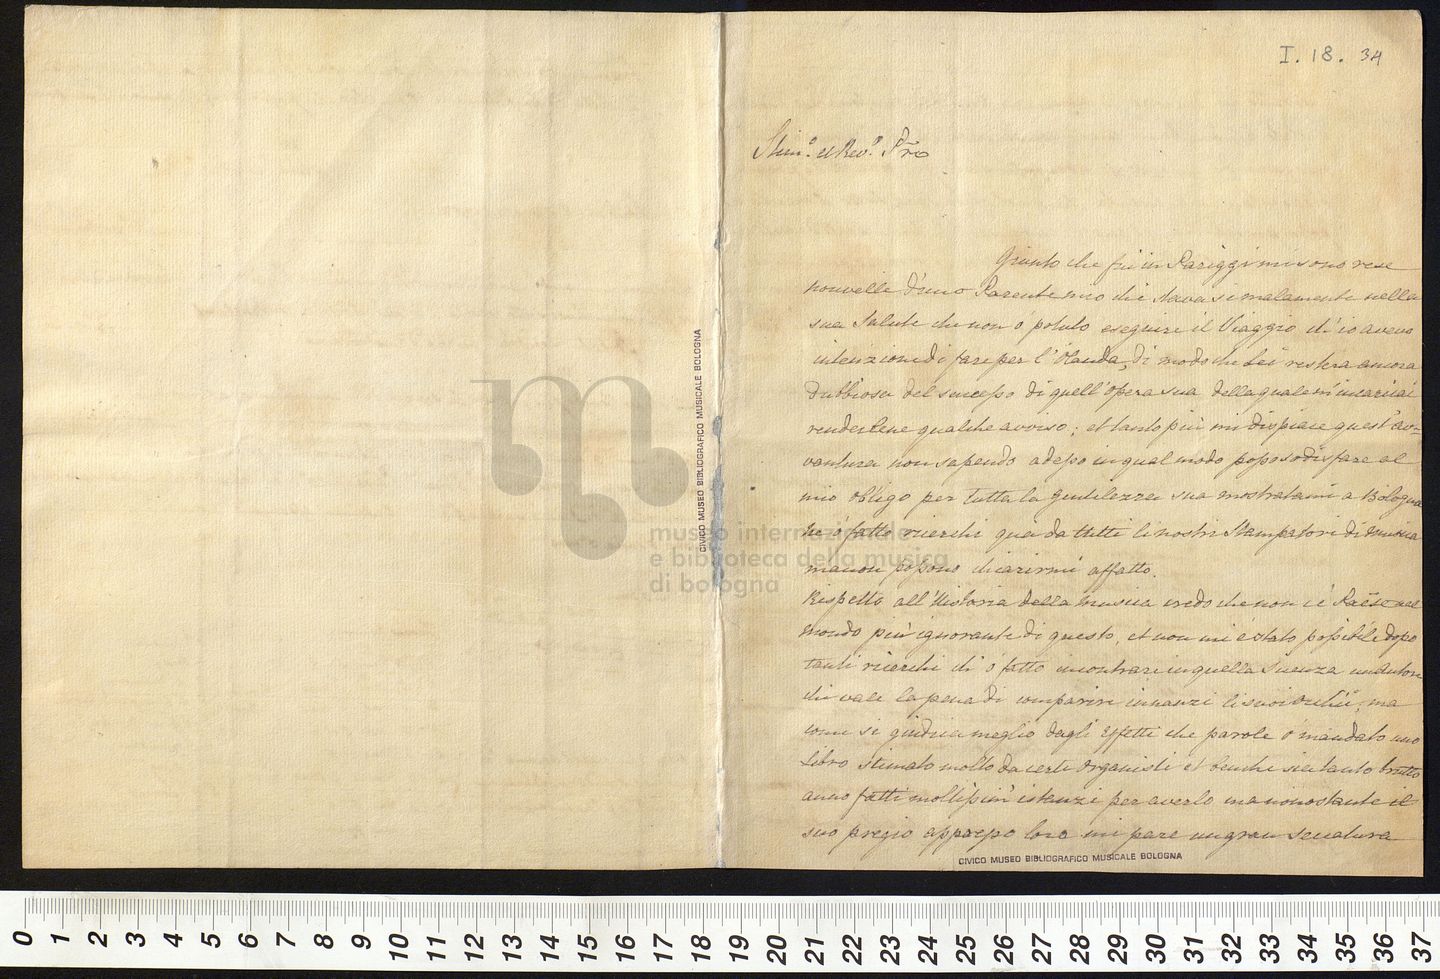 I. 18. 34
Stim.º et Rev.º Prõ
Giunto che fui in Pariggi mi sono rese
nouvelle d'uno Parente mio che stava si malamente nella
sua Salute che non ó potuto eseguire il Viaggio ch'io avevo
intenzione di fare per l'Olanda, di modo che Lei restera ancora
dubbiosa del successo di quell'opera sua della quale m'incaricai
rendertene qualche avviso; et tanto più mi dispiace quest'av=
ventura non sapendo adesso in qual modo posso disfare al
mio obligo per tutta la gentilezza sua mostratami a Bologna
hó fatto ricerchi quà da tutti li nostri Stampatori di Musica
ma non possono chiarirmi affatto.
Rispetto all'Historia della Musica credo che non c'é Paëse nel
mondo più ignorante di questo, et non mi é stato possibile dopo
tanti ricerchi ch'ó fatto incontrare in quella Scienza un Autore
che vale la pena di comparire innanzi li suoi occhii, ma
come si giudica meglio dagli Effetti che parole ó mandato uno
Libro stimato molto da certi Organisti et benche sia tanto brutto
anno fatti molti più istanzi per averlo ma nonostante il
suo pregio appresso loro mi pare un gran seccatura
CIVICO MUSEO BIBLIOGRAFICO MUSICALE BOLOGNA
CIVICO MUSEO BIBLIOGRAFICO MUSICALE BOLOGNA
museo internazionale
e biblioteca della musica
di bologna
0 1 2 3 4 5 6 7 8 9 10 11 12 13 14 15 16 17 18 19 20 21 22 23 24 25 26 27 28 29 30 31 32 33 34 35 36 37